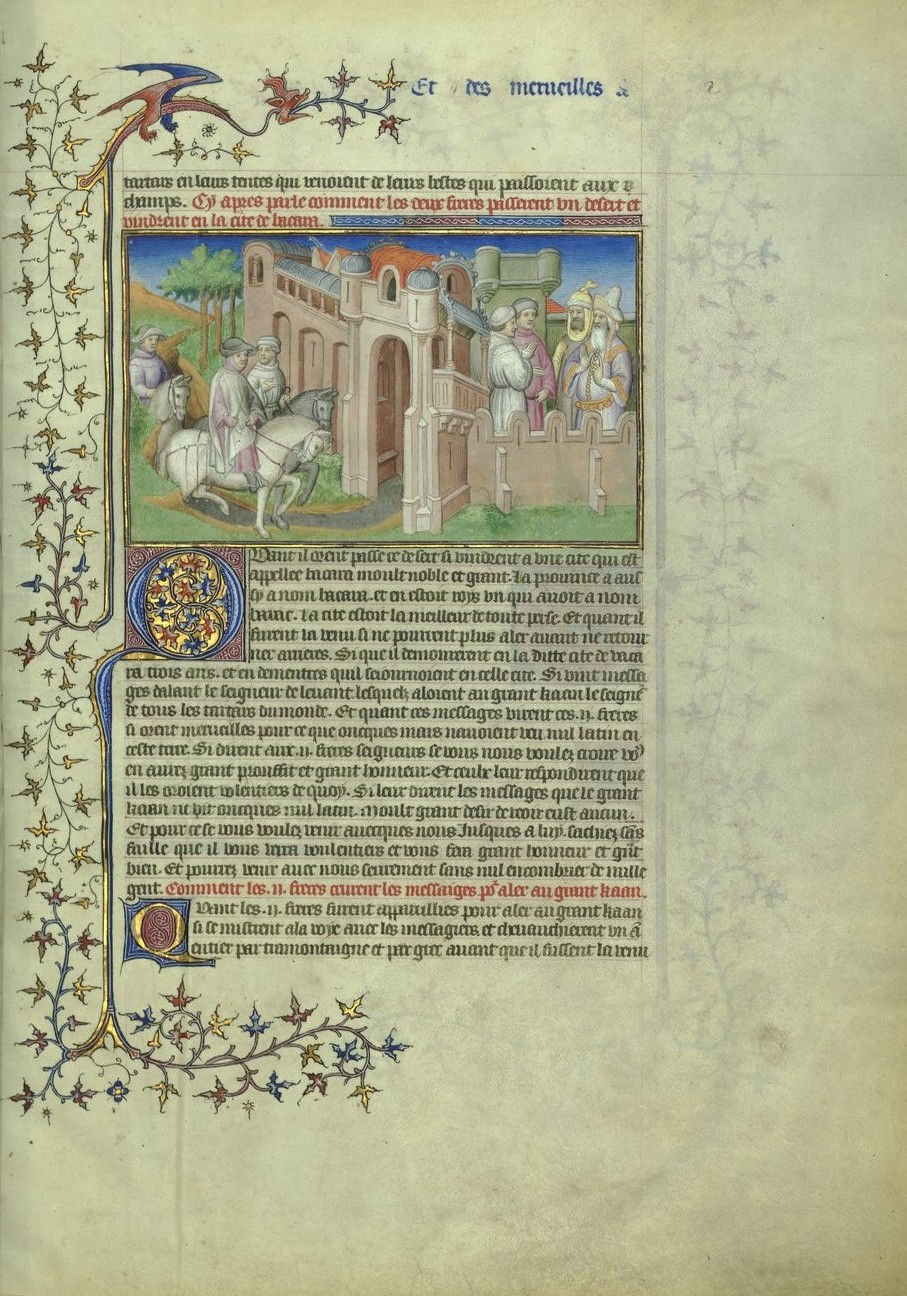 Et des merueilles
2
tartars en leurs tentes qui viuoient de leurs bestes qui paissoient aux
champs. Cy apres parle comment les deux freres passerent vn desert et
vindrent en la cite de bacara.
Quant il orent passe ce desert si vindrent a vne cite qui est
appellee bacara moult noble et grant. La prouince a aus
sy a nom bacara. et en estoit roys vn qui auoit a nom
barac. la cite estoit la meilleur de toute perse. Et quant il
furent la venu si ne pourent plus aler auant ne retour
ner arrieres. Si que il demourerent en la ditte cite de baca
ra trois ans. et en dementres quil seiournoient en celle cite. Si vint messa
ges dalant le seigneur de leuant. lesquelz aloient au grant kaan le seigne
de tous les tartars du monde. Et quant ces messages virent ces .ii. freres
si orent merueilles pour ce que oncques mais nauoient veu nul latin en
ceste terre. Si dirent aux .ii. freres seigneurs se vous nous voulez croire vo
en aurez grant prouffit et grant honneur. Et ceulx leur respondirent que
il les orroient volentiers de quoy. Si leur dirent les messages que le grant
kaan ne vit oncques nul latin. moult grant desir de veoir eust aucun.
Et pour ce se vous voulez venir auecques nous Jusques a luy. sachiez sans
faille que il vous verra voulentiers et vous fera grant honneur et grt
bien. Et pourrez venir auec nous seurement sans nul encombrier de nulle
gent. Comment les .ii. freres crurent les messaiges pr aler au grant kaan.
Quant les .ii. freres furent appareillies pour aler au grant kaan
si se mistrent a la voye auec les messagiers et cheuauchierent vn a
entier par tramontaigne et par grec auant que il fussent la venu